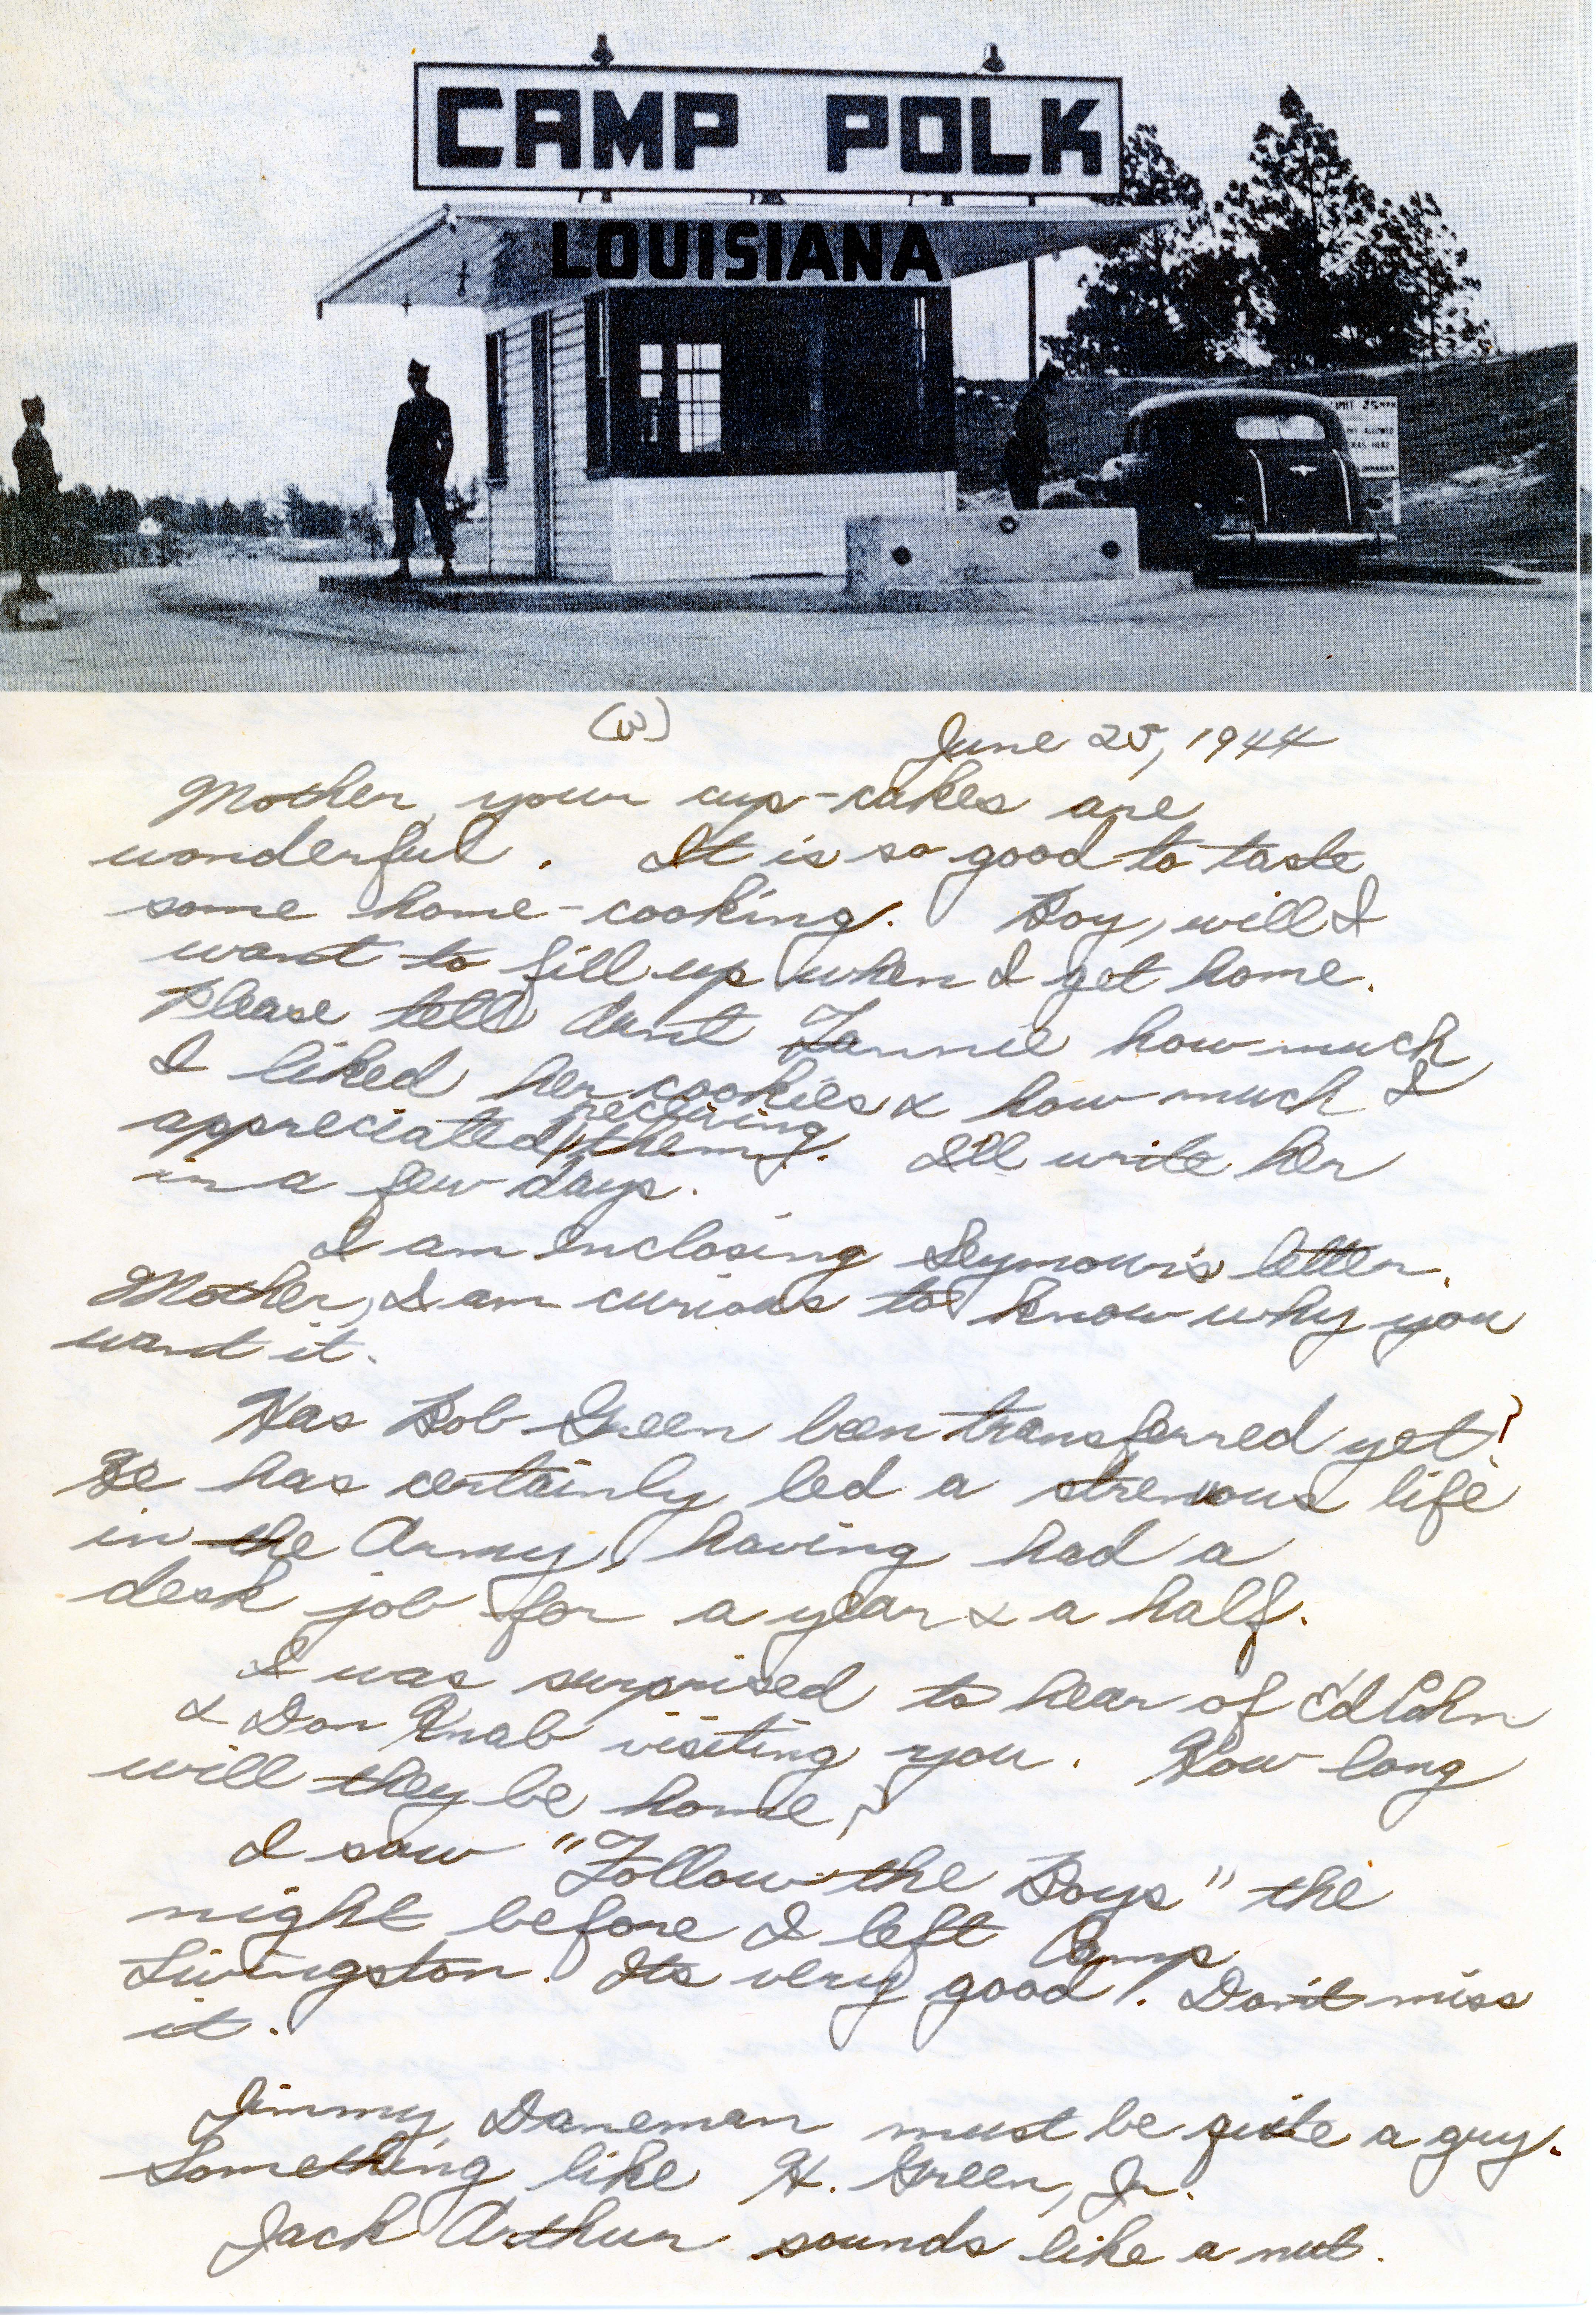 CAMP POLK
LOUISIANA
LIMIT 25 MPH
ALLOWED
HERE
June 25, 1944
Mother, your cup-cakes are
wonderful. It is so good to taste
some home-cooking. Boy, will I
want to fill up when I get home.
Please tell Aunt Fannie how much
I liked her cookies & how much I
receiving
appreciated them. I'll write her
in a few days.
I am enclosing Seymour's letter.
Mother, I am curious to know why you
want it.
Has Bob Green been transferred yet?
He has certainly led a strenuous life
in the Army, having had a
desk job for a year & a half.
I was surprised to hear of Ed Cohn
& Don Knab visiting you. How long
will they be home?
I saw "Follow the Boys" the
night before I left Camp
Livingston. Its very good. Don't miss
it.
Jimmy Daneman must be quite a guy.
Something like H. Green, Jr.
Jack Arthur sounds like a nut.